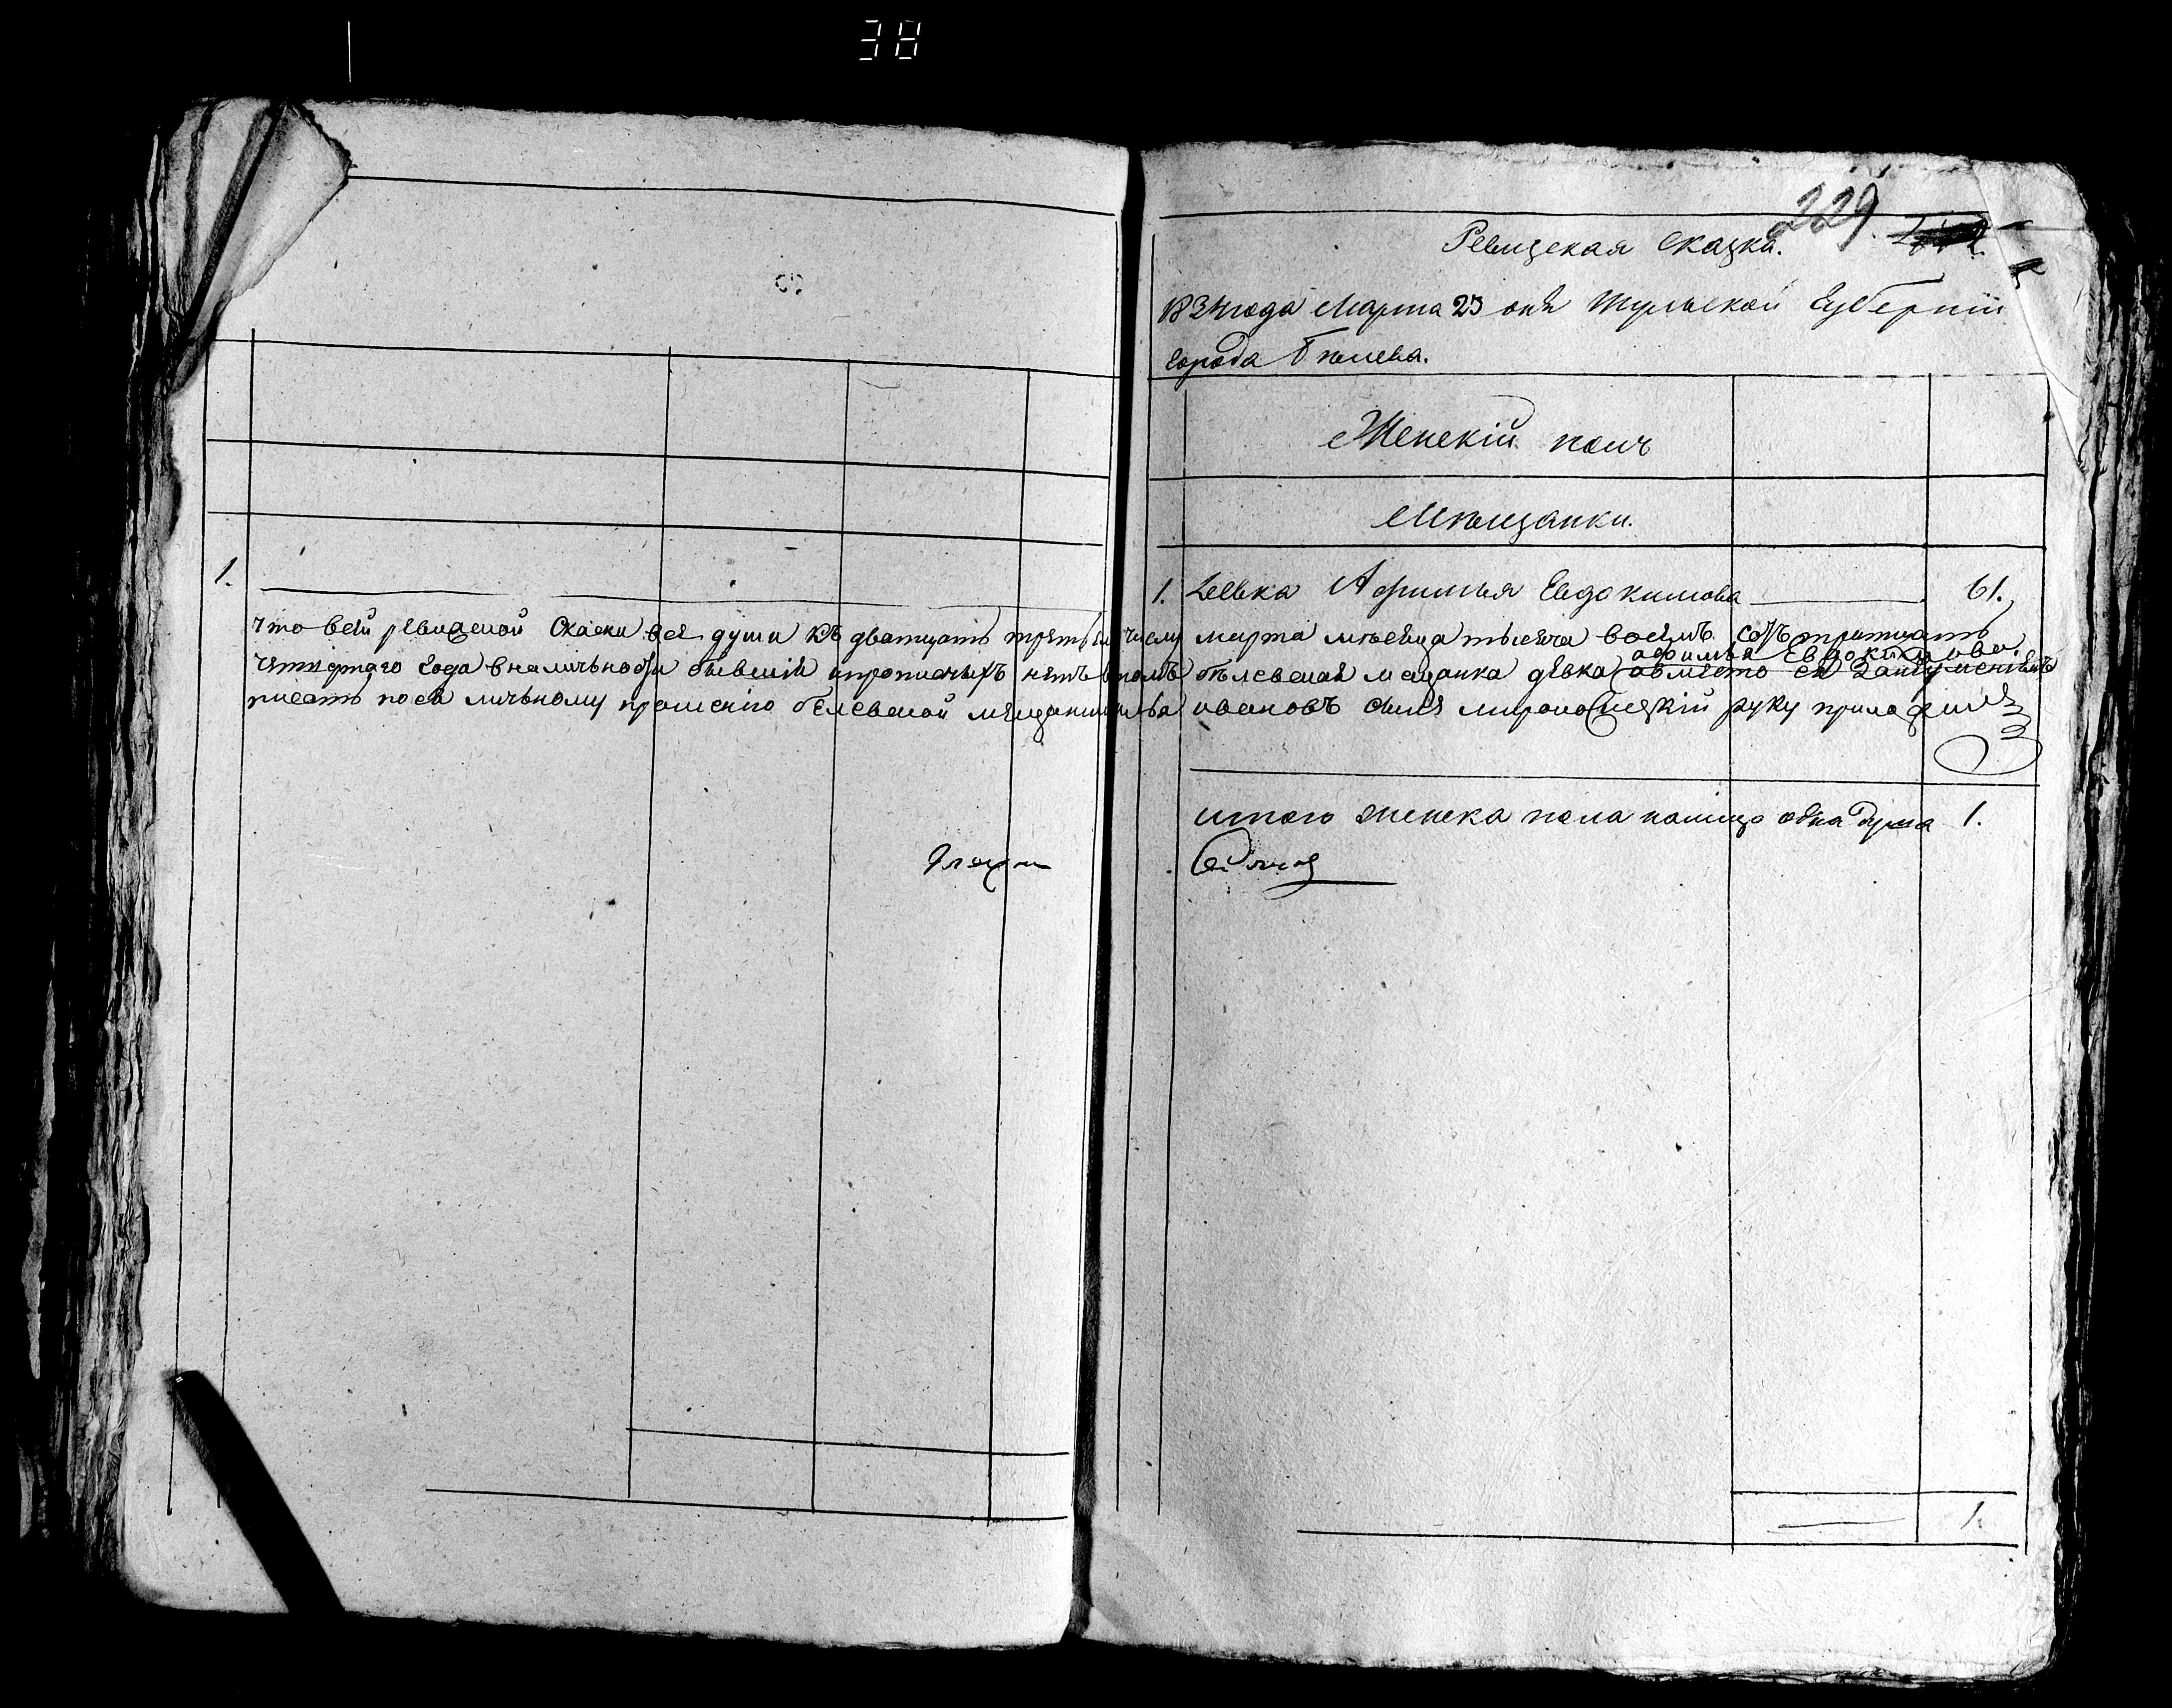 38
229
Ревизская Сказка.
1834 года Марта 23 дня Тульской Губернии
города Бѣлева.
Женскій полъ
Мѣщанки.
1.
1. Девка Афимья Евдокимова 61.
что всей ревиской Скаски все души къ дватцать третьему числу марта мѣсеца тысеча восемь сотъ тритцать
четвертаго года вналичьности бывшія ипрописныхъ нѣтъ втомъ бѣлевская мещанка девка афимья Евдокимова авместо ея заниуменіемъ
писать поея личьному прошенію бѣлевской мещанинъ ивановъ сынъ мироносицкій руку приложилъ
итого женска пола налицо одна душа 1.
1.